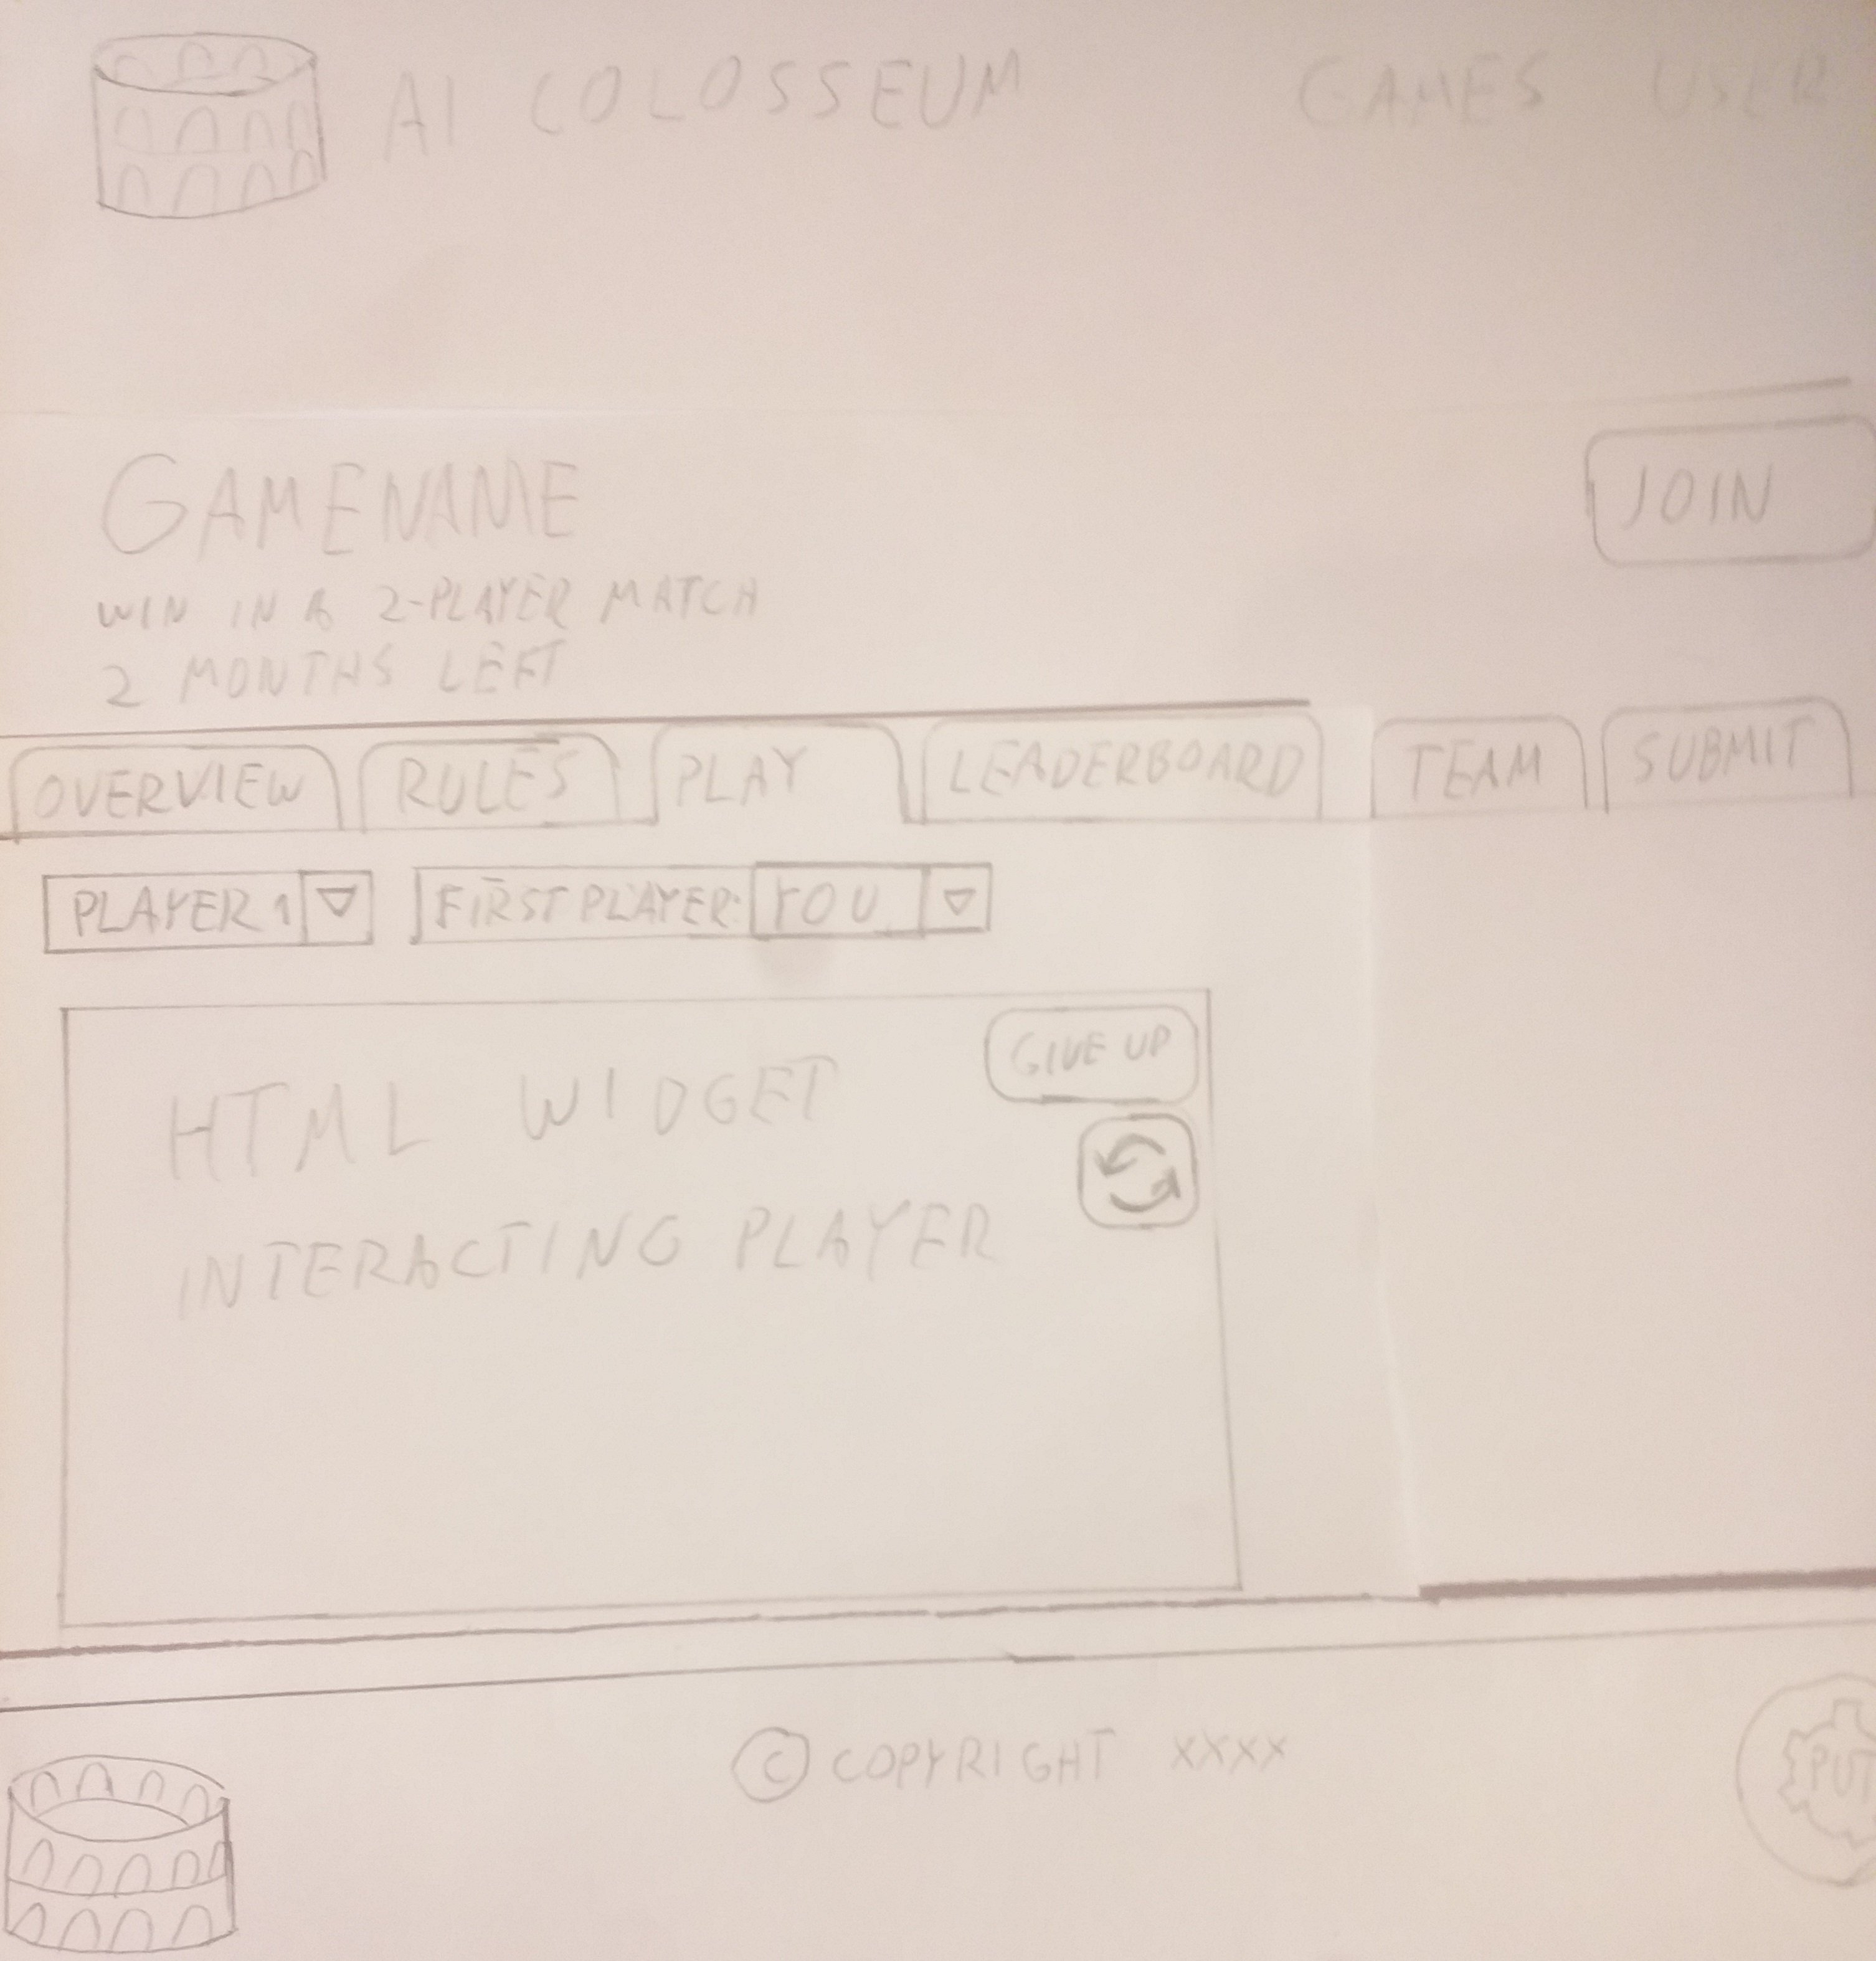 AI COLOSSEUM GAMES USER
GAMENAME
JOIN
WIN IN A 2-PLAYER MATCH
2 MONTHS LEFT
OVERVIEW RULES PLAY LEADERBOARD TEAM SUBMIT
PLAYER 1 FIRST PLAYER: YOU
GIVE UP
HTML WIDGET
INTERACTING PLAYER
© COPYRIGHT XXXX
PUT